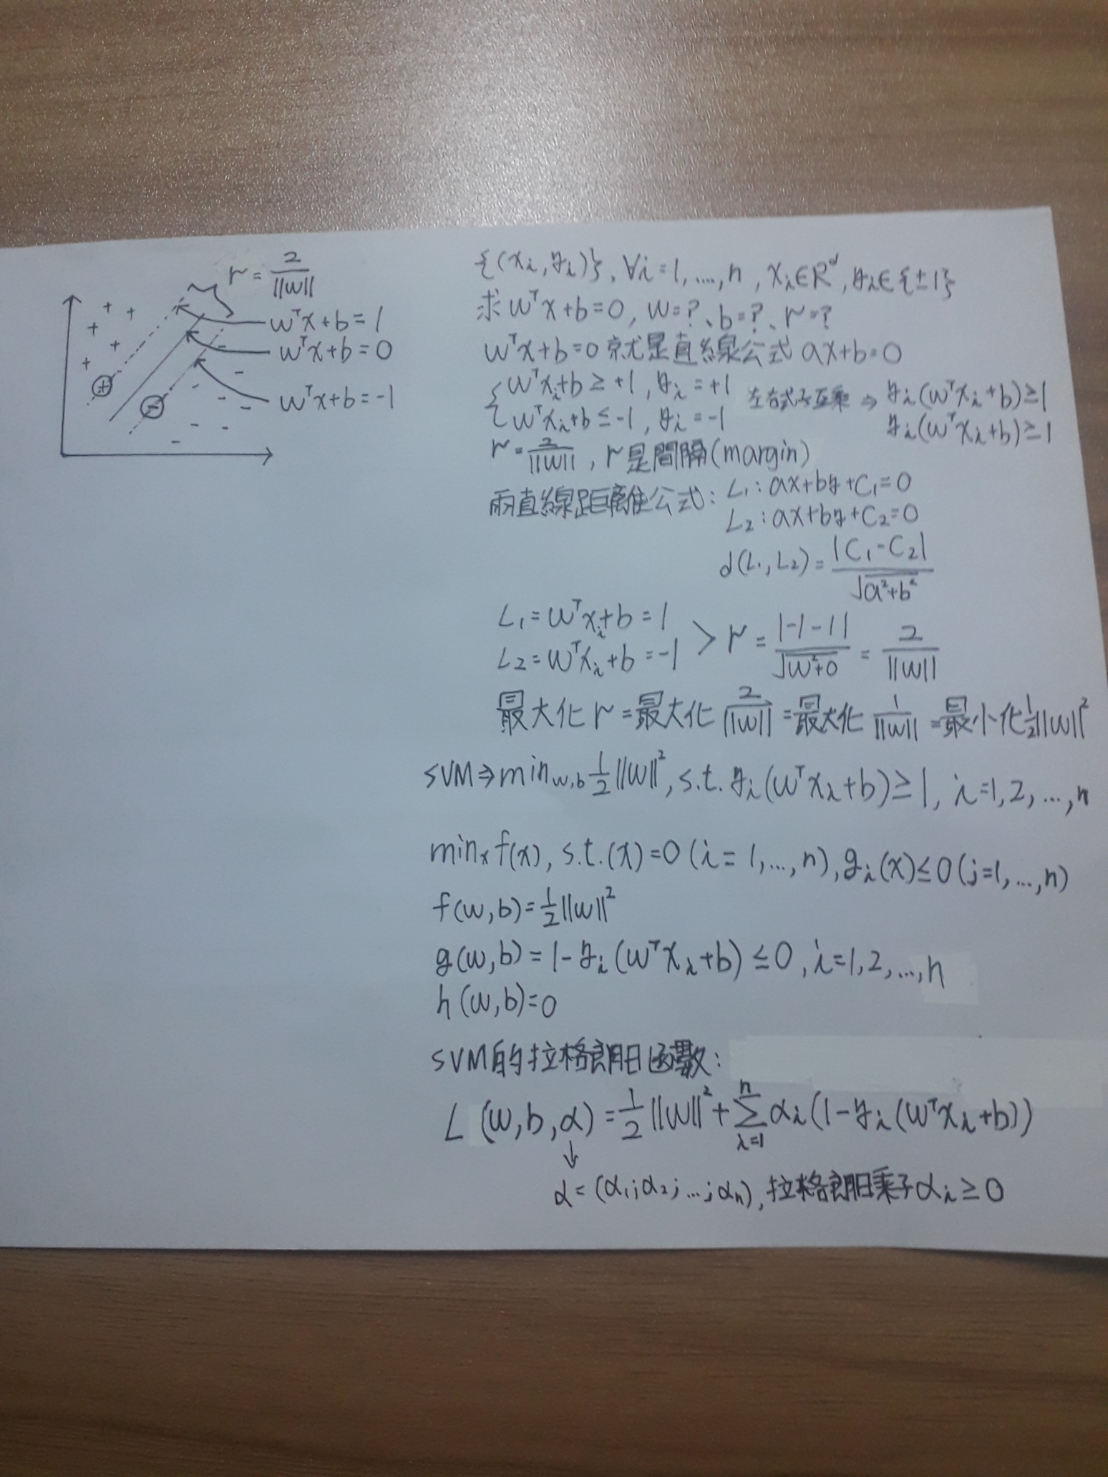 r = 2/||w||
wᵀx+b=1
wᵀx+b=0
wᵀx+b=-1
{(xᵢ,yᵢ)}, ∀i=1,...,n, xᵢ∈Rᵈ, yᵢ∈{±1}
求wᵀx+b=0, w=?、b=?、r=?
wᵀx+b=0就是直線公式ax+b=0
{wᵀxᵢ+b≥+1, yᵢ=+1 左右式子互乘 ⇒ yᵢ(wᵀxᵢ+b)≥1
{wᵀxᵢ+b≤-1, yᵢ=-1 yᵢ(wᵀxᵢ+b)≥1
r=2/||w||, r是間隔(margin)
兩直線距離公式: L₁:ax+by+C₁=0
L₂:ax+by+C₂=0
d(L₁,L₂)=|C₁-C₂|/√(a²+b²)
L₁=wᵀxᵢ+b=1
L₂=wᵀxᵢ+b=-1 > r=|-1-1|/√(w²+0)=2/||w||
最大化r=最大化2/||w||=最大化1/||w||=最小化½||w||²
SVM⇒min w,b ½||w||², s.t. yᵢ(wᵀxᵢ+b)≥1, i=1,2,...,n
minₓf(x), s.t.(x)=0(i=1,...,n), gᵢ(x)≤0(j=1,...,n)
f(w,b)=½||w||²
g(w,b)=1-yᵢ(wᵀxᵢ+b)≤0, i=1,2,...,n
h(w,b)=0
SVM的拉格朗日函數:
L(w,b,α)=½||w||²+∑ⁿᵢ₌₁αᵢ(1-yᵢ(wᵀxᵢ+b))
↓
α=(α₁;α₂;...;αₙ), 拉格朗日乘子αᵢ≥0